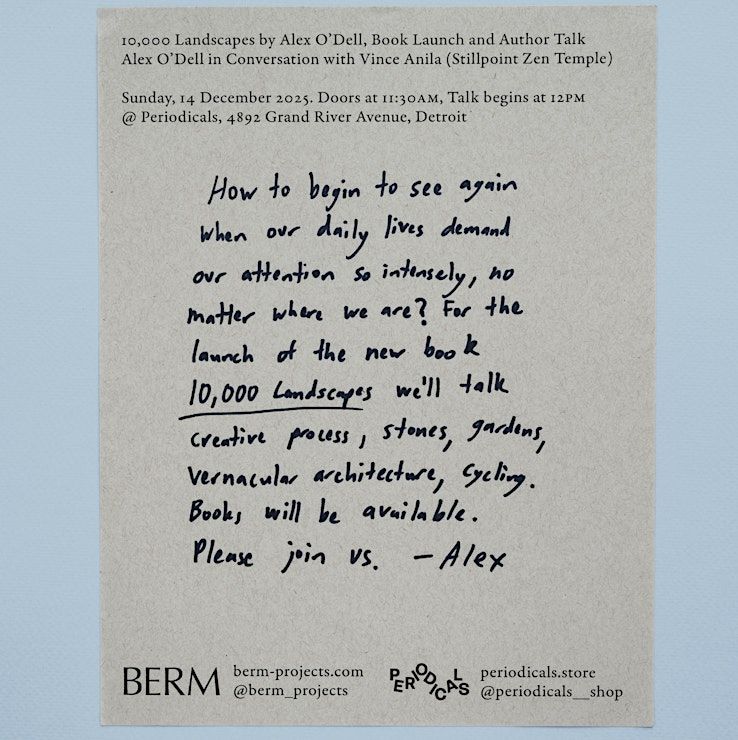 10,000 Landscapes by Alex O’Dell, Book Launch and Author Talk
Alex O’Dell in Conversation with Vince Anila (Stillpoint Zen Temple)
Sunday, 14 December 2025. Doors at 11:30AM, Talk begins at 12PM
@ Periodicals, 4892 Grand River Avenue, Detroit
How to begin to see again
when our daily lives demand
our attention so intensely, no
matter where we are? For the
launch of the new book
10,000 Landscapes we'll talk
creative process, stones, gardens,
vernacular architecture, cycling.
Books will be available.
Please join us. — Alex
BERM
berm-projects.com
@berm_projects
PERIODICALS
periodicals.store
@periodicals__shop